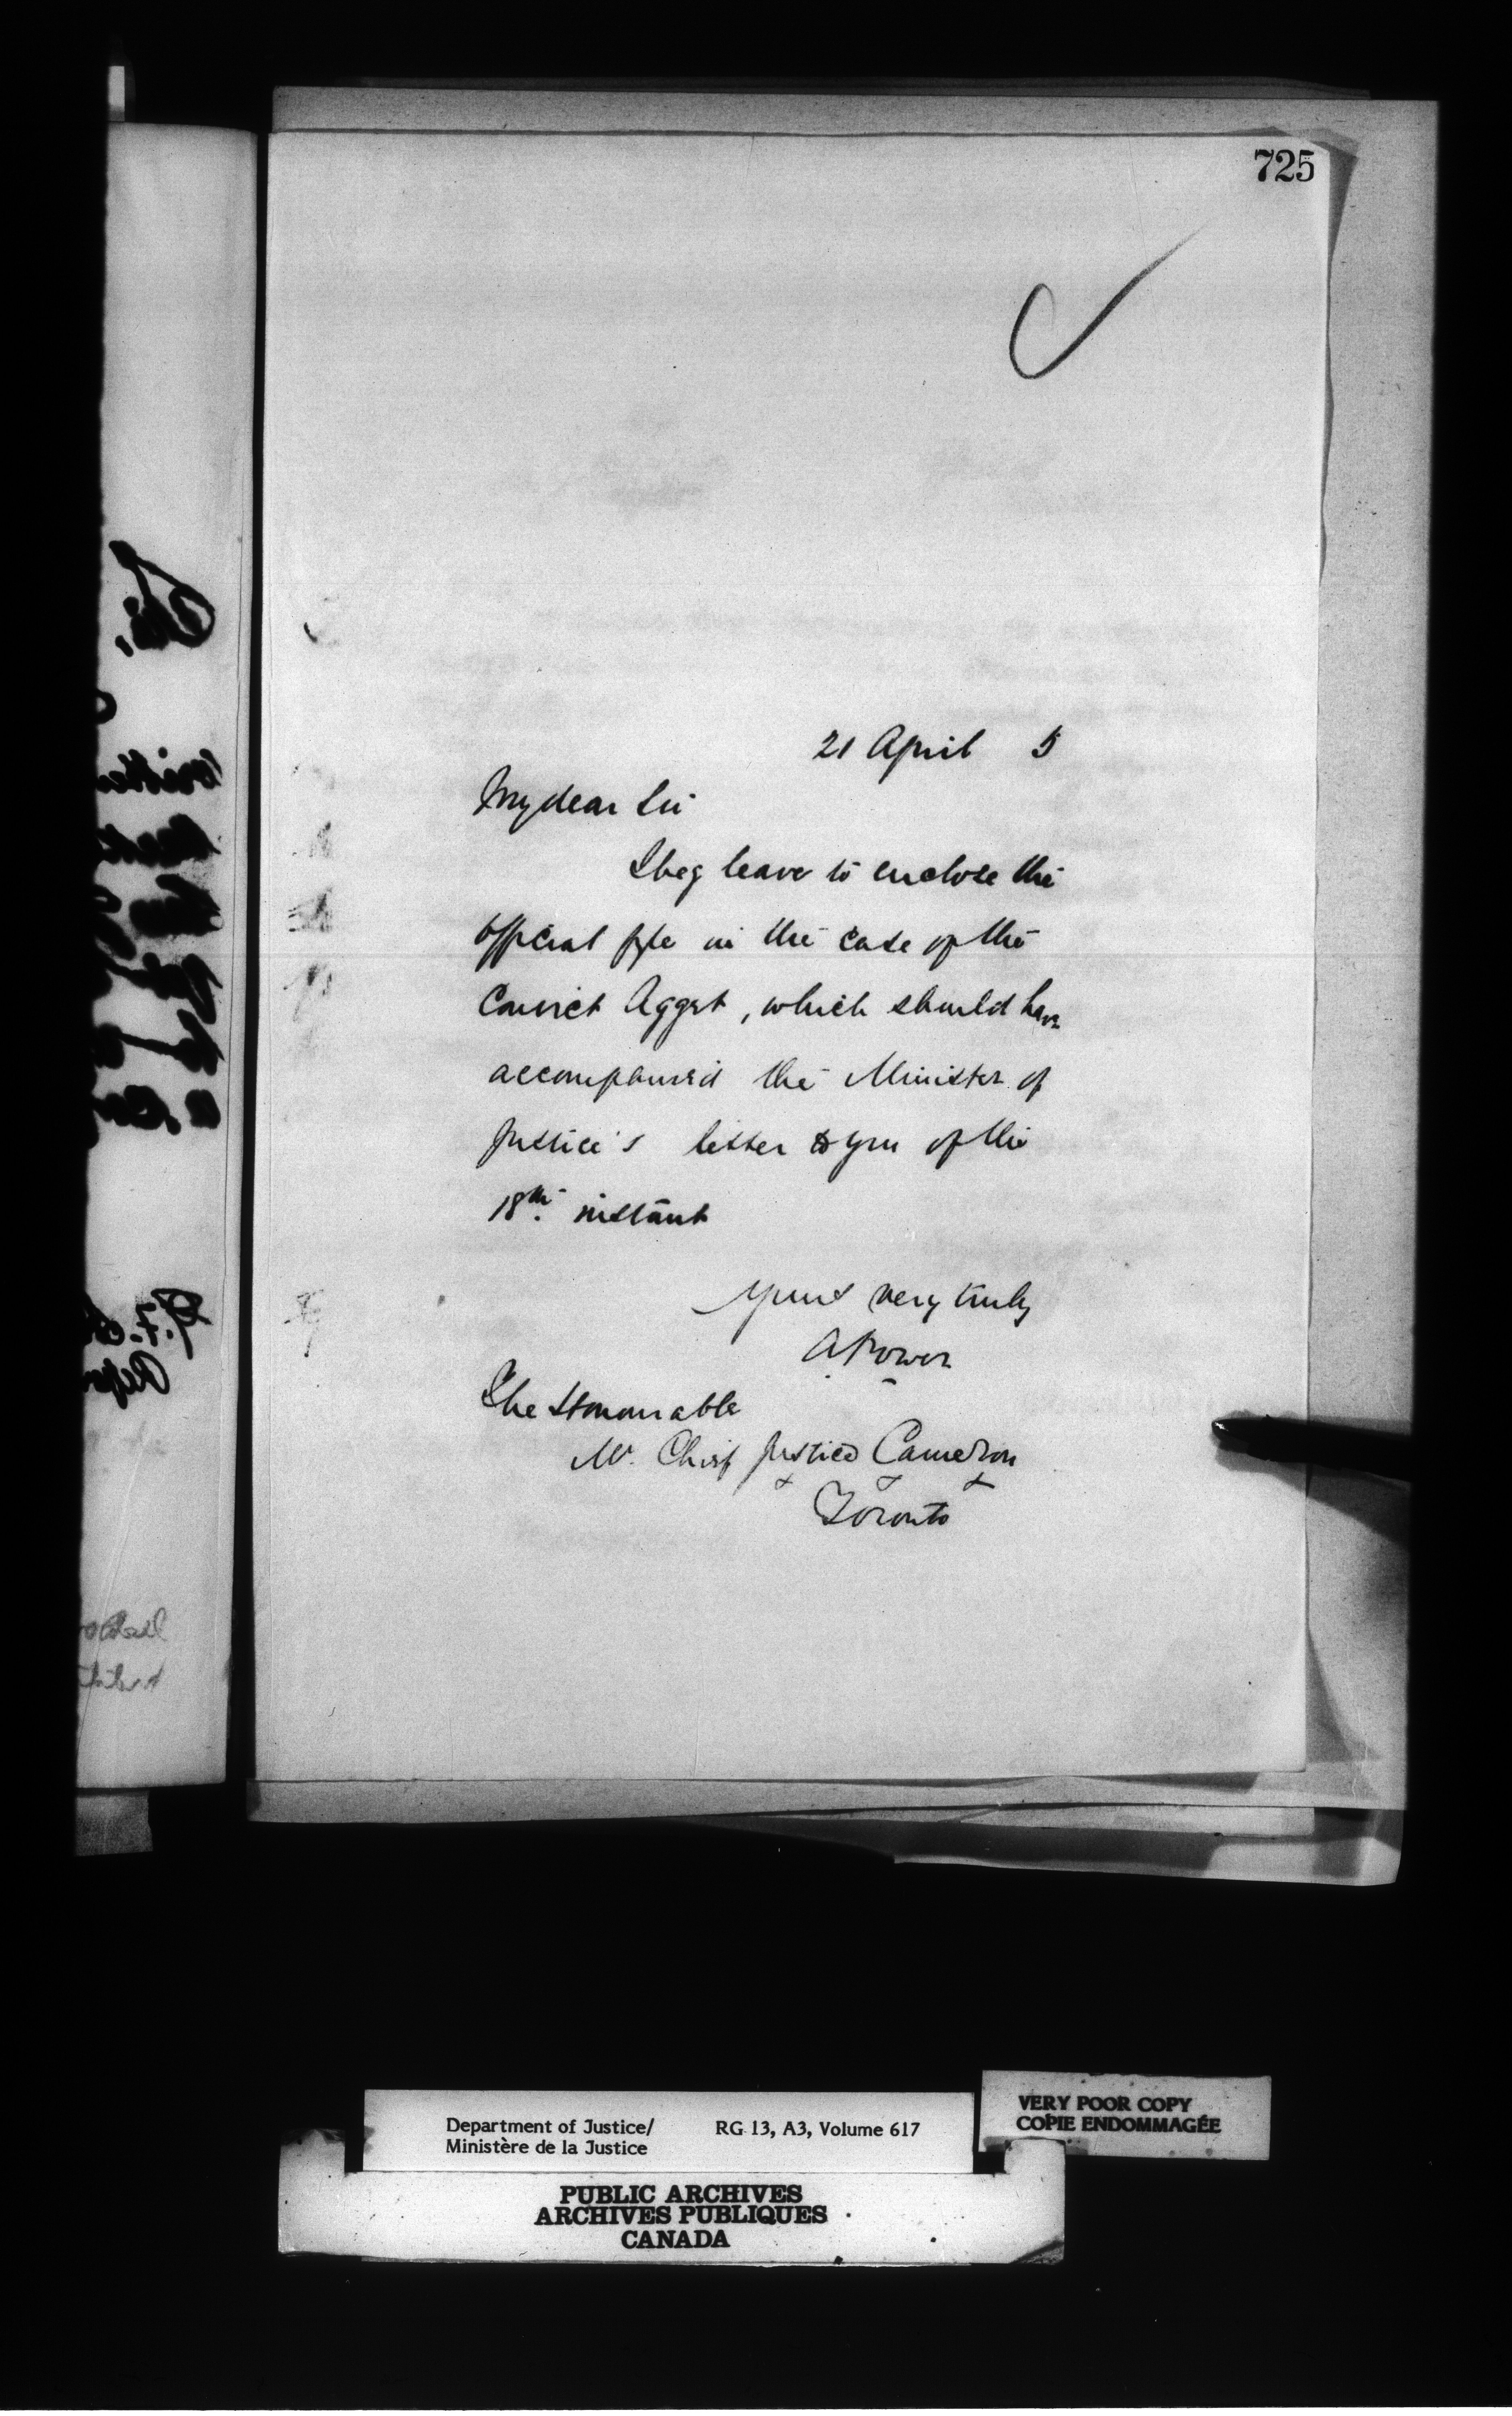 725
21 April 5
My dear Sir
I beg leave to enclose the
official fyle in the case of the
Convict Aggst, which should have
accompanied the Minister of
Justice's letter to you of the
18th. instant
Yours very truly
A Power
The Honourable
Mr. Chief Justice Cameron
Toronto
Department of Justice/ RG 13, A3, Volume 617
Ministère de la Justice
VERY POOR COPY
COPIE ENDOMMAGÉE
PUBLIC ARCHIVES
ARCHIVES PUBLIQUES
CANADA